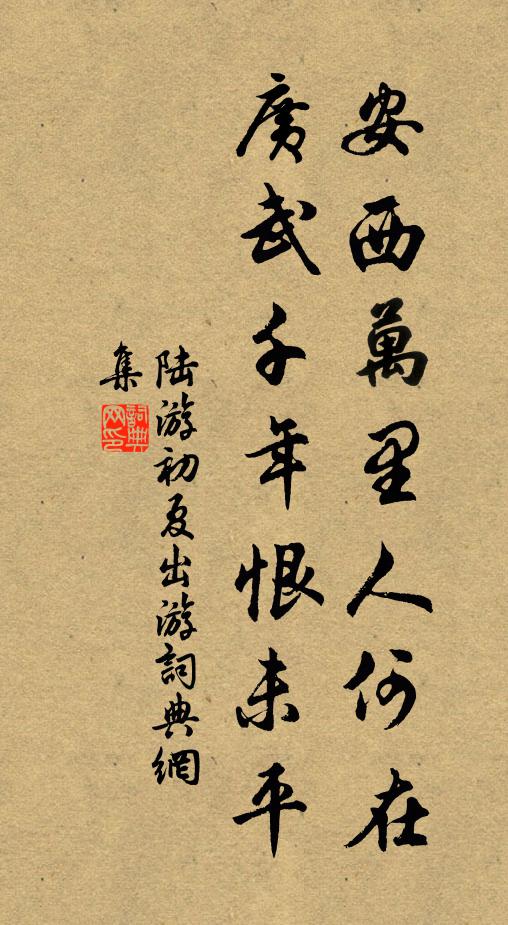 安西萬里人何在
廣武千年恨未平
陸游初夏出游詞典網
集
詞典
网印